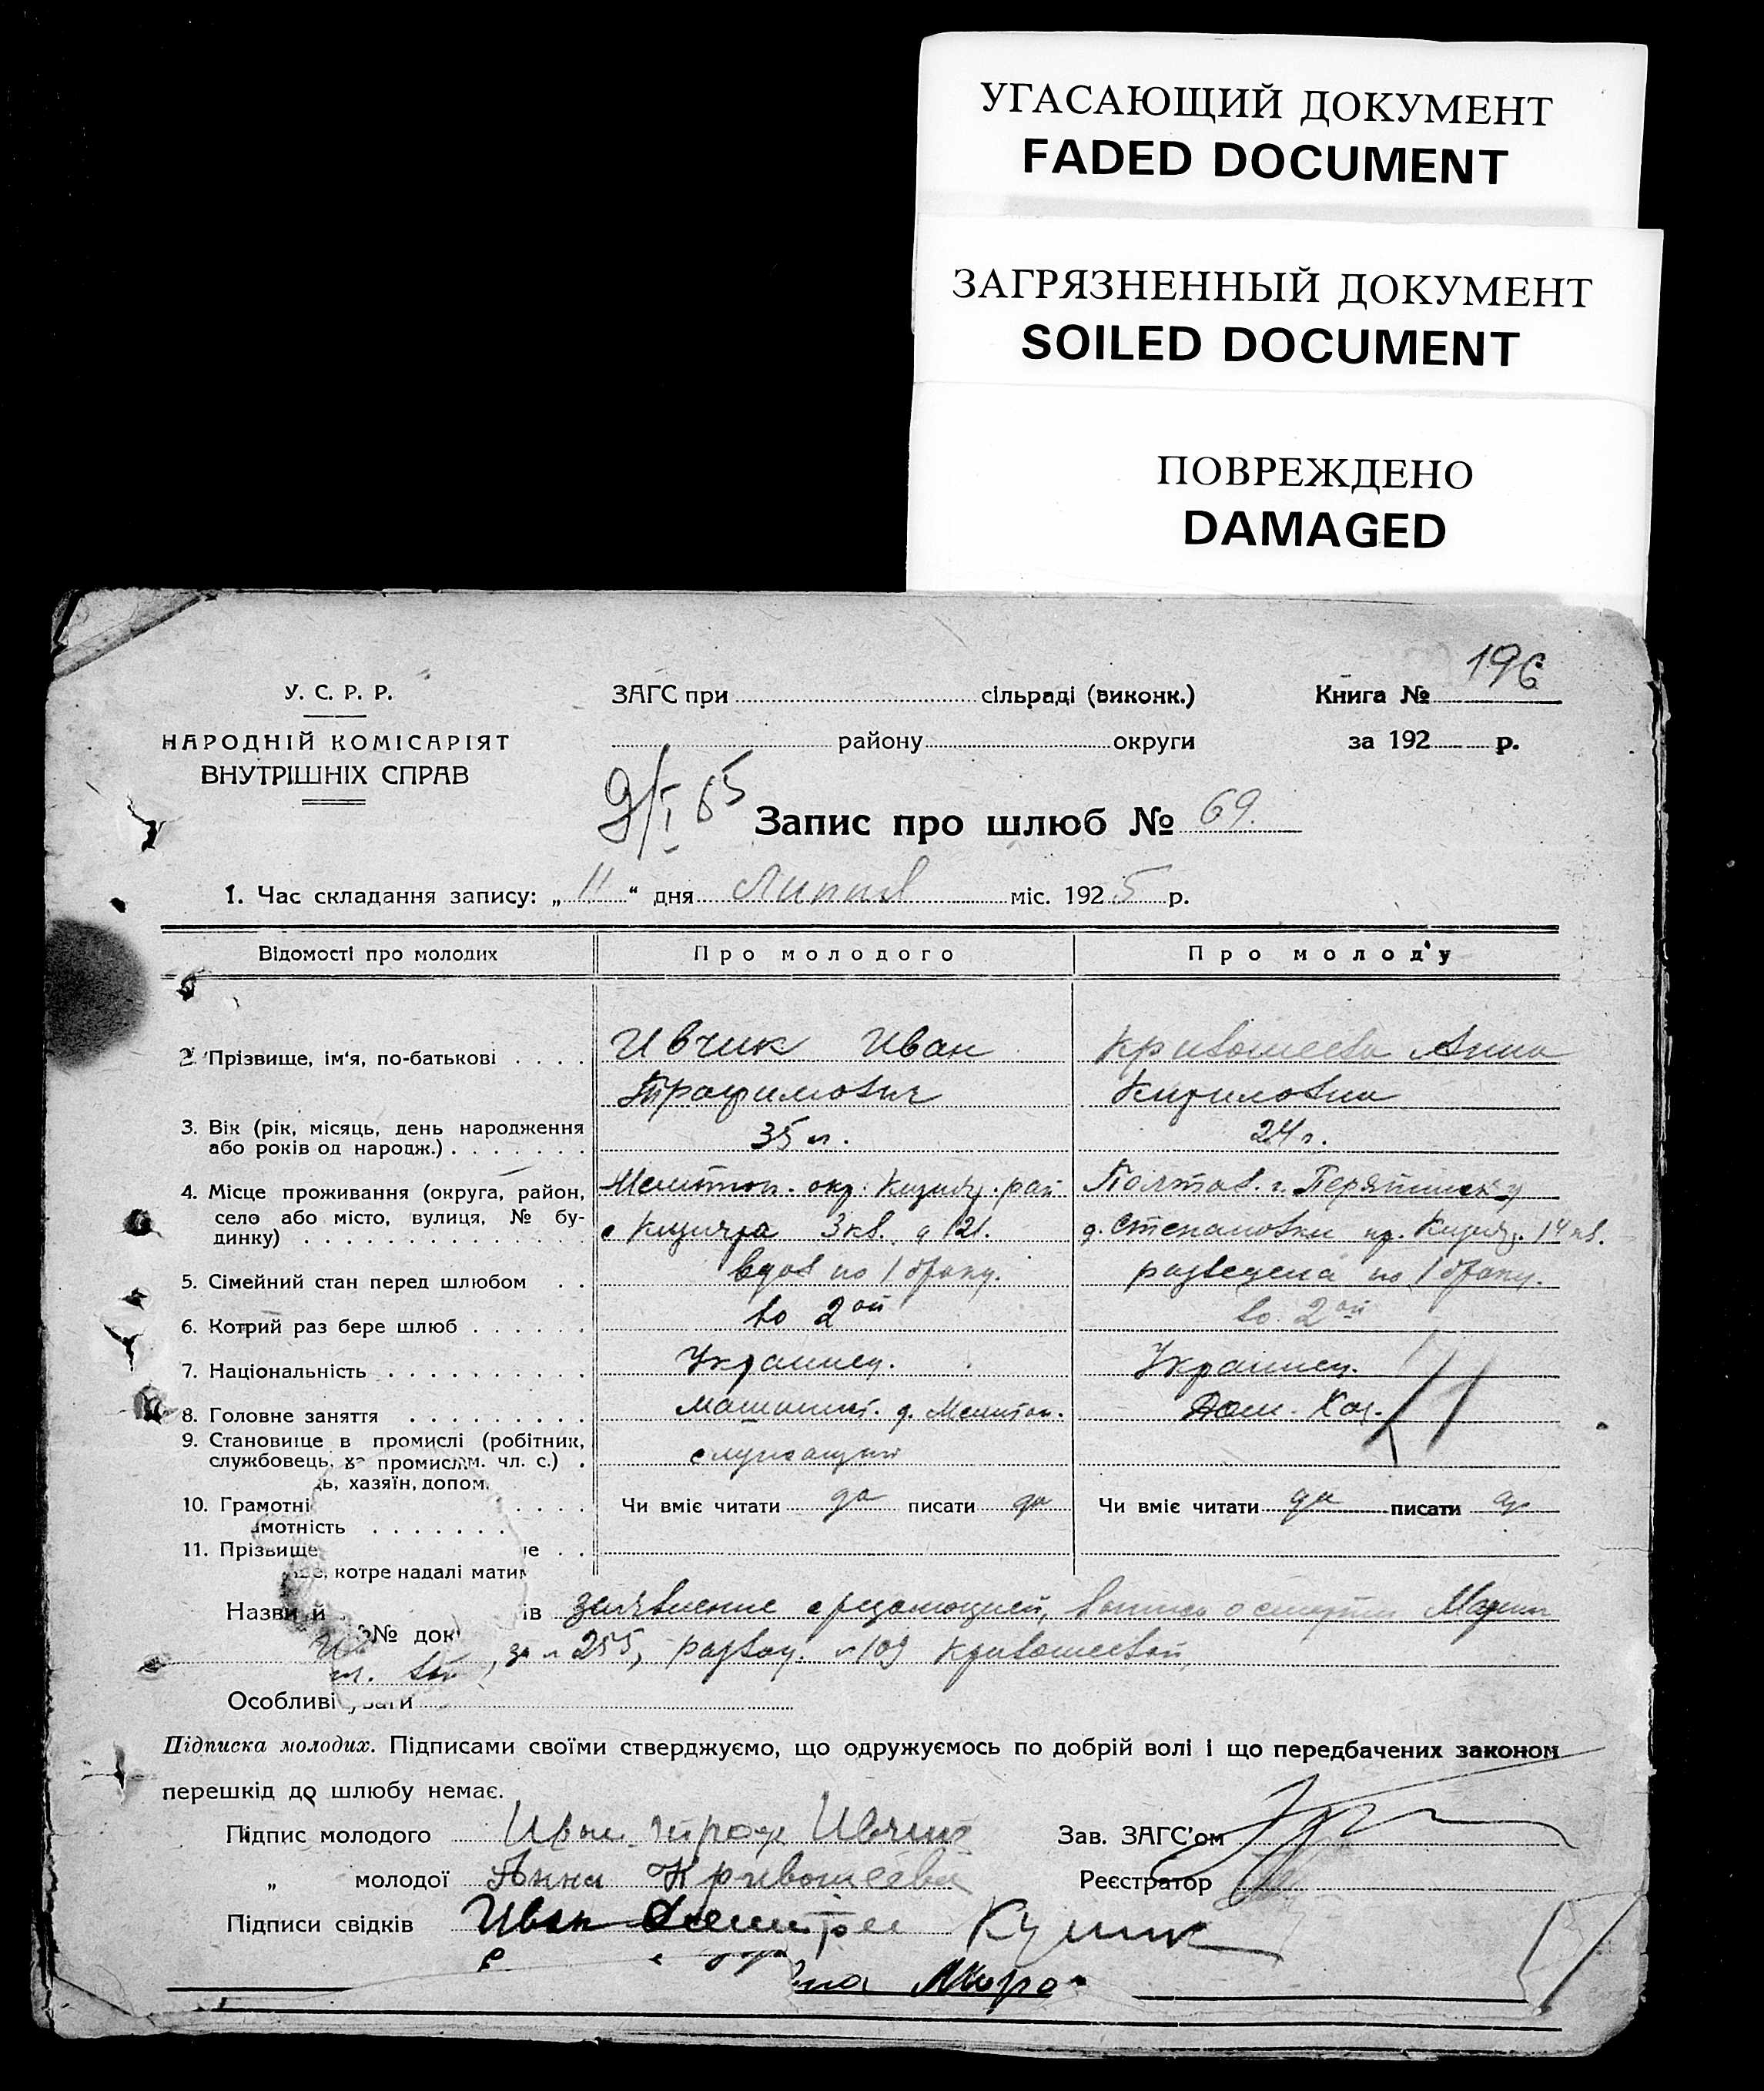 УГАСАЮЩИЙ ДОКУМЕНТ
FADED DOCUMENT
ЗАГРЯЗНЕННЫЙ ДОКУМЕНТ
SOILED DOCUMENT
ПОВРЕЖДЕНО
DAMAGED
196
У. С. Р. Р.
НАРОДНІЙ КОМІСАРІЯТ
ВНУТРІШНІХ СПРАВ
ЗАГС при сільраді (виконк.)
району округи
Книга №
за 192 р.
9/I 65
Запис про шлюб № 69.
1. Час складання запису: „ 11 “ дня Липня міс. 1925 р.
Відомості про молодих Про молодого Про молоду
2. Прізвище, ім'я, по-батькові . . . . Ивчик Иван Кривошеева Анна
Трофимович Кириловна
3. Вік (рік, місяць, день народження
або років од народж.) . . . . . . . 35 л. 24 г.
4. Місце проживання (округа, район,
село або місто, вулиця, № бу-
динку)
Мелитоп. окр. рай
с 3 кв. д 121.
Полтав. г.
д. Степановки пр. 14 кв.
5. Сімейний стан перед шлюбом . . вдов по 1 браку. разведена по 1 браку.
6. Котрий раз бере шлюб . . . . . . во 2ой во 2ой
7. Національність . . . . . . . . . . Украинец. Украинец.
8. Головне заняття . . . . . . . . . машинист. д. Мелитоп. Дом. Хоз.
9. Становище в промислі (робітник,
службовець, промислм. чл. с.) . служащий
ь, хазяїн, допом.
10. Грамотні . . . . Чи вміє читати да писати да Чи вміє читати да писати да
амотність . . . . . . .
11. Прізвище е . .
котре надалі матим
Назви й ів заявление с резолюцией, о смерти Марии
№ док
за № 255, развод. № 109 Кривошеевой,
Особливі ваги
Підписка молодих. Підписами своїми стверджуємо, що одружуємось по добрій волі і що передбачених законом
перешкід до шлюбу немає.
Підпис молодого Иван Троф Ивчик Зав. ЗАГС'ом
„ молодої Анна Кривошеева Реєстратор
Підписи свідків Иван Кулик